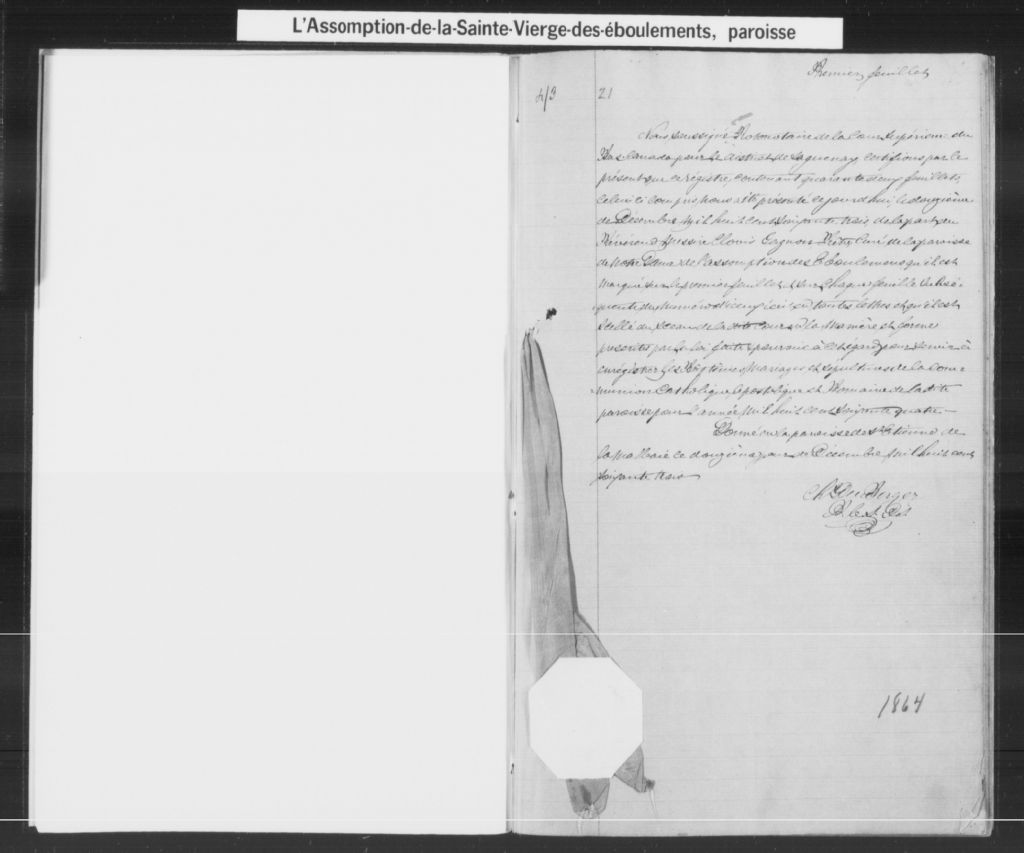 L'Assomption-de-la-Sainte-Vierge-des-éboulements, paroisse
Premier feuillet
21
Nous soussigné Protonotaire de la Cour Supérieure du
Bas Canada pour le district de Saguenay certifions par le
présent que ce régistre, contenant quarante deux feuillets,
celui ci compris, nous a été présenté ce jourd'hui le douzième
de Décembre Mil huit cent soixante trois, de la part du
Révérend Messire Clovis Gagnon Prêtre Curé de la paroisse
de Notre Dame de l'assomption des Eboulemens qu'il est
marqué sur le premier feuillet et sur chaque feuillet subsé-
quent du numéro d'iceux écrit en toutes lettres et qu'il est
scellé du sceau de la dite Cour la manière et forme
prescrites par la loi faite et pourvue à cet égard pour servir à
enrégistrer les Baptêmes Mariages et sépultures de la Com-
munion Catholique Apostolique et Romaine de la dite
paroisse pour l'année Mil huit cent soixante quatre —
Donné en la paroisse de St Etienne de
la Malbaie ce douzième jour de Décembre Mil huit cent
soixante trois
Chs Du Berger
P. C. S. Dt
1864